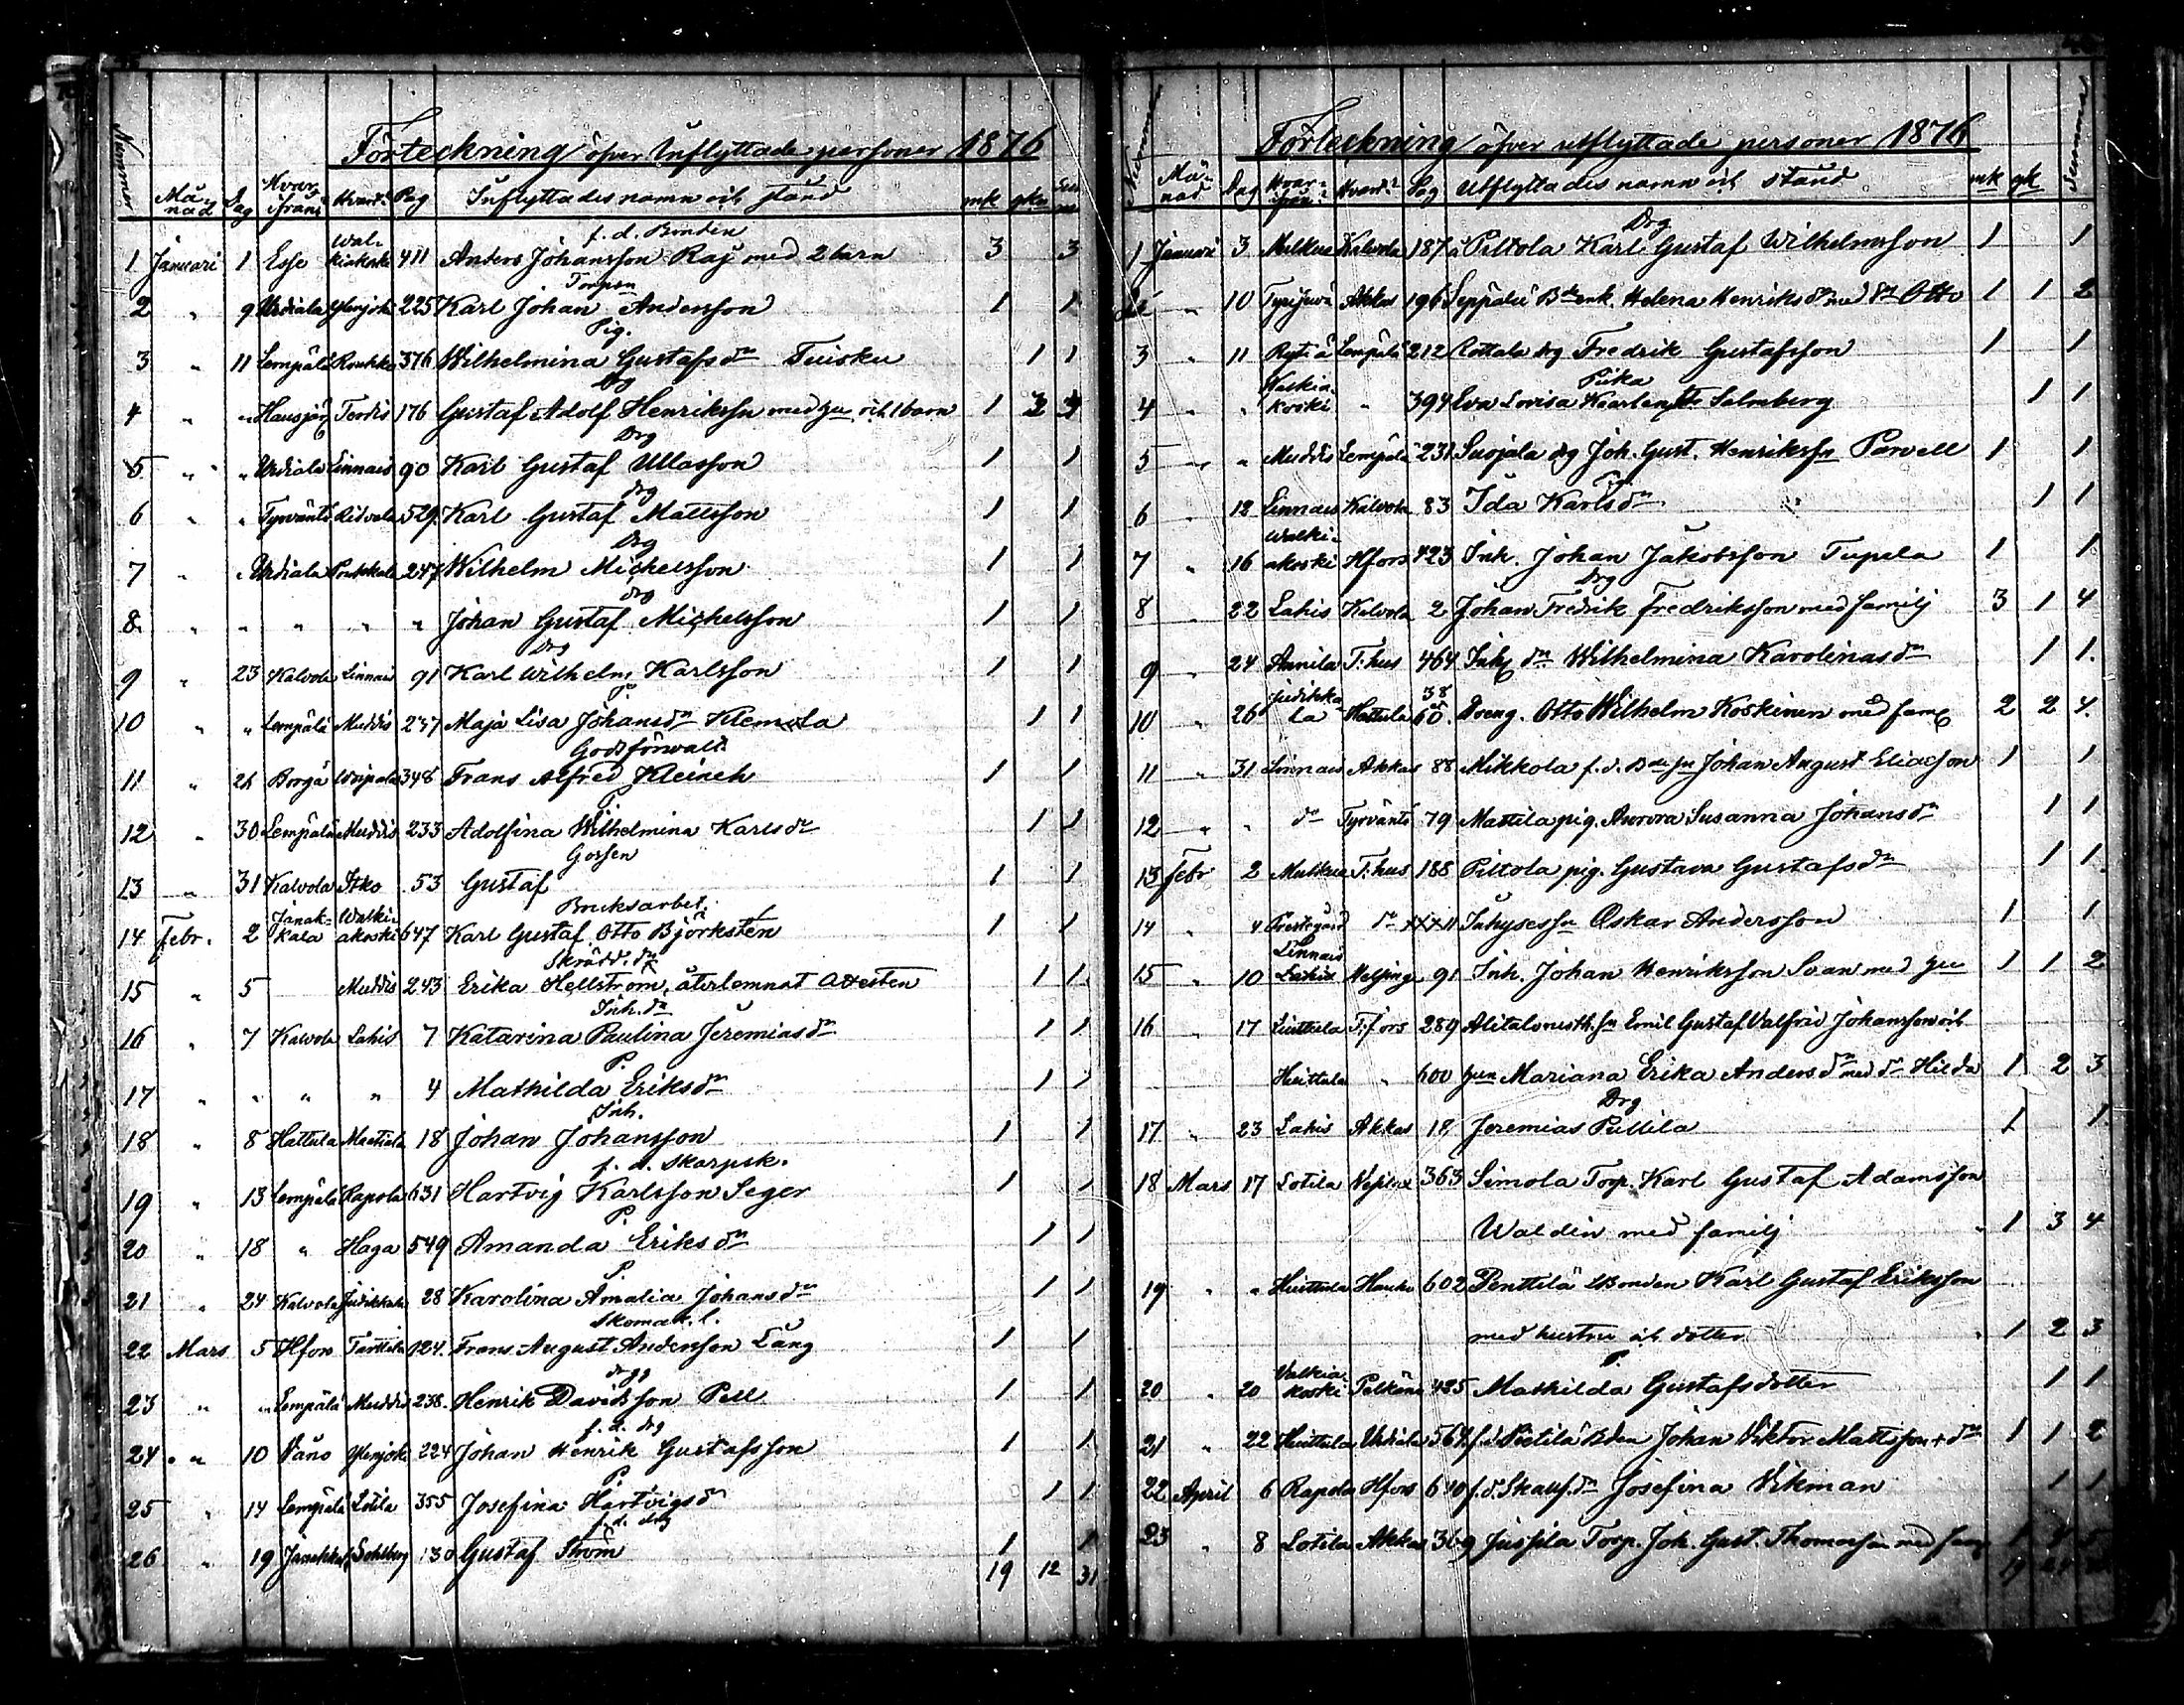 Förteckning öfver Inflyttade personer 1876
Nummer Månad Dag Hvarifrån Hvart Pag Inflyttades namn och stånd mk qk Summa
f. d. Bonden
1 Januari 1 Esse Walkiakoski 411 Anders Johansson Raj med 2 barn 3 3
Torpsn
2 " 9 Urdiala 225 Karl Johan Andersson 1 1
Pig.
3 " 11 Lempälä Roukko 376 Wilhelmina Gustafsdr Tuisku 1 1
Drg
4 " " Hausjärvi 176 Gustaf Adolf Henriksson med hu och 1 barn 1
Drg
5 " " Urdiala Linnais 90 Karl Gustaf Ullasson 1 1
drg
6 " " Tyrväntö Ridvala 529 Karl Gustaf Mattsson 1 1
Drg
7 " " Urdiala 247 Wilhelm Michelsson 1 1
drg
8 " " " " " Johan Gustaf Michelsson 1 1
Drg
9 " 23 Kalvola Linnais 91 Karl Wilhelm Karlsson 1 1
P
10 " " Lempälä Muddis 237 Maja Lisa Johansdr Klemola 1 1
Godsförvalt.
11 " 26 Borgå 348 Frans Alfred Kleineh 1 1
P.
12 " 30 Lempälä Muddis 233 Adolfina Wilhelmina Karlsdr 1 1
Gossen
13 " 31 Kalvola Itko 53 Gustaf 1 1
Bruksarbet.
14 Febr. 2 Janakkala Walkiakoski 647 Karl Gustaf Otto Björkstén 1 1
Skrädd. dr
15 " 5 Muddis 243 Erika Hellström, återlemnat attesten 1 1
Inh. dr
16 " 7 Kalvola Lahis 7 Katarina Paulina Jeremiasdr 1 1
P.
17 " " " " 4 Mathilda Eriksdr 1 1
Inh.
18 " 8 Hattula Mattila 18 Johan Johansson 1 1
f. d. Skarpsk.
19 " 13 Lempälä Rapola 631 Hartvig Karlsson Seger 1 1
P.
20 " 18 " Haga 549 Amanda Eriksdr 1 1
P.
21 " 24 Kalvola Judikkala 28 Karolina Amalia Johansdr 1 1
Skomak. l.
22 Mars 5 Hfors Tarttila 124 Frans August Andersson Lång 1 1
drg
23 " " Lempälä Muddis 238 Henrik Davidsson Pell 1 1
f. d. drg
24 " 10 Vånå 224 Johan Henrik Gustafsson 1 1
P.
25 " 14 Lempälä Lotila 355 Josefina Hartvigsdr 1 1
f. d. drg
26 " 19 Janakkala 130 Gustaf Ström 1 1
19 12 31
Förteckning öfver utflyttade personer 1876
Nummer Månad Dag Hvarifrån Hvart Pag Utflyttades namn och stånd mk qk Summa
Drg
1 Januari 3 Mälkiä Kalvola 187 Piltola Karl Gustaf Wilhelmsson 1 1
" 10 Akkas 196 Seppälä Bdeenk. Helena Henriksdr med dr Otto 1 1 2
3 " 11 Lempälä 212 Fredrik Gustafsson 1 1
Piika
4 " " Walkiakoski " 394 Eva Lovisa Salmberg 1 1
5 " " Muddis Lempälä 231 Suojala drg Joh. Gust. Henriksson Parvell 1 1
6 " 12 Linnais Kalvola 83 Ida Karlsdr 1 1
7 " 16 Walkiakoski Hfors 423 Inh. Johan Jakobsson Tupela 1 1
Drg
8 " 22 Lahis Kalvola 2 Johan Fredrik Fredriksson med familj 3 1 4
9 " 24 Annila T:hus 464 Inh dr Wilhelmina Karolinasdr 1 1
10 " 26 Judikkala Hattula 38 60 Dreng. Otto Wilhelm Koskinen med fam 2 2 4
11 " 31 Linnais Akkas 88 Mikkola f. d. Bdesn Johan August Eliasson 1 1
12 " " do Tyrväntö 79 Mattila pig. Aurora Susanna Johansdr 1 1
13 Febr 2 Mälkiä T:hus 188 Piltola pig. Gustava Gustafsdr 1 1
14 " 4 Prestegård do XXXII Inhysessn Oskar Andersson 1 1
15 " 10 Linnais Helsinge 91 Inh. Johan Henriksson Svan med hu 1 1 2
16 " 17 Liuttula T:fors 289 Alitalo Emil Gustaf Valfrid Johansson och
Huittula " 600 hun Mariana Erika Andersdr med dr Hilda 1 2 3
Drg
17 " 23 Lahis Akkas 18 Jeremias Puttila 1 1
18 Mars 17 Lotila 363 Simola Torp. Karl Gustaf Adamsson
Waldin med familj 1 3 4
19 " " Huittula Hauho 602 Penttilä Bonden Karl Gustaf Eriksson
med hustru och dotter 1 2 3
P.
20 " 20 Valkiakoski Pelkäne 425 Mathilda Gustafsdotter 1 1
21 " 22 Huittula Urdiala 567 f. d. Pietilä Bden Johan Viktor Mattsson + dr 1 1 2
22 April 6 Rapola Hfors 610 f. d. Josefina Vikman 1 1
23 " 8 Lotila Akkas 369 Jussila Torp. Joh. Gust. Thomasson med fam